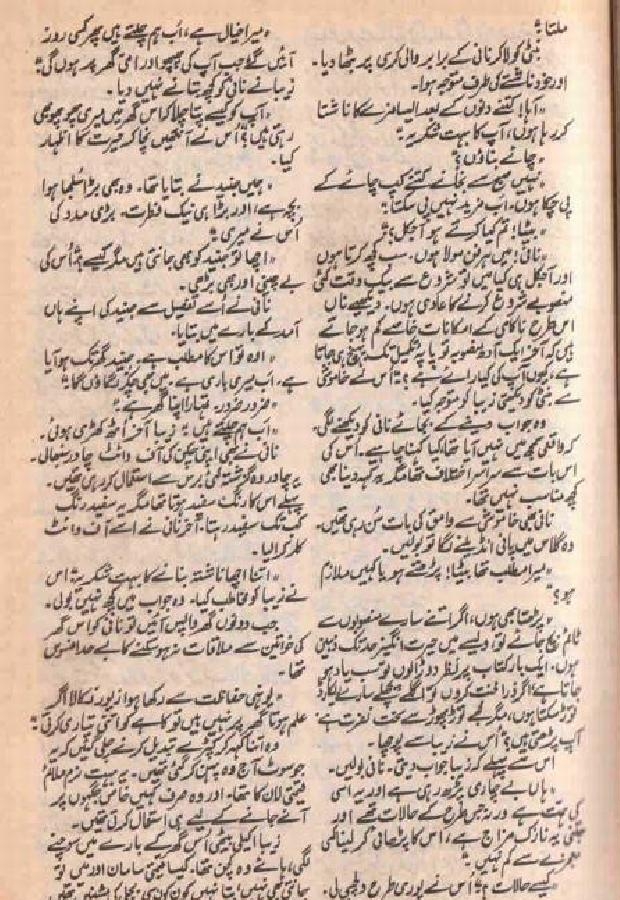 ملتا؟"
مٹی کو لا کر نانی کے برابر والی کرسی پر بٹھا دیا۔
اور خود ناشتے کی طرف متوجہ ہوا۔
"آہا! کتنے دنوں کے بعد ایسا مزے کا ناشتا
کر رہا ہوں، آپ کا بہت شکریہ۔"
"چائے بناؤں؟"
"نہیں صبح سے خانے کتنے کپ چائے کے
پی چکا ہوں۔ اب مزید نہیں پی سکتا۔"
"بیٹا! تم کیا کرتے ہو آجکل؟"
"نانی! میں ہر فن مولا ہوں۔ سب کچھ کرتا ہوں
اور آجکل ہی کیا میں تو شروع سے بیک وقت کئی
منصوبے شروع کرنے کا عادی ہوں۔ دیکھیے ناں
اس طرح ناکامی کے امکانات خاصے کم ہو جاتے
ہیں کہ آخر ایک آدھ منصوبہ تو پایہ تکمیل تک پہنچ ہی جاتا
ہے، کیوں آپ کی کیا رائے ہے؟" اس نے خاموشی
سے مٹی کو دیکھتی زیبا کو متوجہ کیا۔
وہ جواب دینے کے بجائے نانی کو دیکھنے لگی۔
کہ واقعی سمجھ میں نہیں آیا تھا کیا کہنا چاہیے۔ اس کی
اس بات سے سراسر اختلاف تھا مگر یہ کہہ دینا بھی
کچھ مناسب نہیں تھا۔
نانی بھی خاموشی سے وامق کی بات سن رہی تھیں۔
وہ گلاس میں پانی انڈیلنے لگا تو بولیں۔
"میرا مطلب تھا بیٹا! پڑھتے ہو یا کہیں ملازم
ہو؟"
"پڑھتا بھی ہوں، اگر اتنے سارے منصوبوں سے
ٹائم بچ جائے تو ویسے میں حیرت انگیز حد تک ذہین
ہوں۔ ایک بار کتاب پر نظر دوڑا لوں تو سب یاد ہو
جاتا ہے، اگر ذرا محنت کروں تو اگلے پچھلے سارے ریکارڈ
توڑ سکتا ہوں، مگر مجھے توڑ پھوڑ سے سخت نفرت ہے۔
آپ پڑھتی ہیں؟" اس نے زیبا سے پوچھا۔
اس سے پہلے کہ زیبا جواب دیتی۔ نانی بولیں۔
"ہاں بے چاری پڑھ رہی ہے اور یہ اسی
کی ہمت ہے ورنہ جس طرح کے حالات تھے اور
جتنی یہ نازک مزاج ہے، اس کا پڑھائی کر لینا کسی
معجزے سے کم نہیں۔"
"کیسے حالات؟" اس نے پوری طرح دلچسپی لی۔
"میرا خیال ہے، اب ہم چلتے ہیں پھر کسی روز
آئیں گے جب آپ کی پھپھو اور امی گھر پر ہوں گی۔"
زیبا نے نانی کو کچھ بتانے نہیں دیا۔
"آپ کو کیسے پتا چلا کہ اس گھر میں میری پھوپھی
رہتی ہیں؟" اس نے آنکھیں نچا کر حیرت کا اظہار
کیا۔
"ہمیں جنید نے بتایا تھا۔ وہ بھی بڑا سلجھا ہوا
بچہ ہے، اور بڑا ہی نیک فطرت۔ بڑی مدد کی
اُس نے میری۔"
"اچھا تو جنید کو بھی جانتی ہیں مگر کیسے؟" اُس کی
بے چینی اور بھی بڑھی۔
نانی نے اُسے تفصیل سے جنید کی اپنے ہاں
آمد کے بارے میں بتایا۔
"اوہ تو اس کا مطلب ہے۔ جنید گھر تک ہو آیا
ہے۔ اب میری باری ہے۔ میں بھی چکر لگاؤں گا۔"
"ضرور ضرور۔ تمہارا اپنا گھر ہے۔"
"اب ہم چلتے ہیں۔" زیبا آخر اُٹھ کھڑی ہوئی۔
نانی نے بھی اپنی چکن کی آف وائٹ چادر سنبھالی۔
یہ چادر وہ گزشتہ کئی برس سے استعمال کر رہی تھیں۔
پہلے اس کا رنگ سفید ہوتا تھا مگر یہ سفید رنگ
کب تک سفید رہتا۔ آخر نانی نے اسے آف وائٹ
کلر کرا لیا۔
"اتنا اچھا ناشتہ بنانے کا بہت شکریہ۔" اس
نے زیبا کو مخاطب کیا۔ وہ جواب میں کچھ نہیں بولی۔
جب دونوں گھر واپس آئیں تو نانی کو اس گھر
کی خواتین سے ملاقات نہ ہو سکنے کا بے حد افسوس
تھا۔
"یونہی حفاظت سے رکھا ہوا زیور نکالا اگر
علم ہوتا گھر پر نہیں ہیں تو کاہے کو اتنی تیاری کرتی۔"
وہ اتنا کہہ کر کپڑے تبدیل کرنے چلی گئیں کہ یہ
جو سوٹ آج وہ پہن کر گئی تھیں۔ یہ بہت نرم ملائم
قیمتی لان کا تھا۔ اور وہ صرف کہیں خاص جگہوں پر
آنے جانے کے لیے ہی استعمال کرتی تھیں۔
زیبا اکیلی بیٹھی اس گھر کے بارے میں سوچنے
لگی، ہائے وہ کچن تھا۔ کیسا قیمتی سامان اور میں تو
جانتی بھی نہیں، پتا نہیں کون کون سی بجلی کی مشینیں تھیں